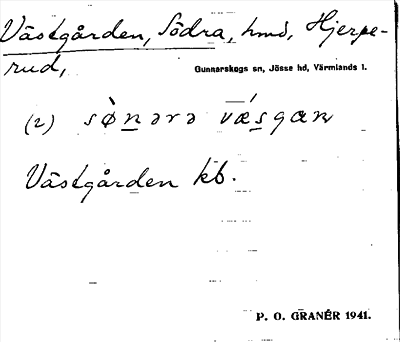 Västgården, Södra, hmd, Hjerpe-
rud,
Gunnarskogs sn, Jösse hd, Värmlands l.
(2) sø̀nərə vǽsgan
Västgården kb.
P. O. GRANÉR 1941.